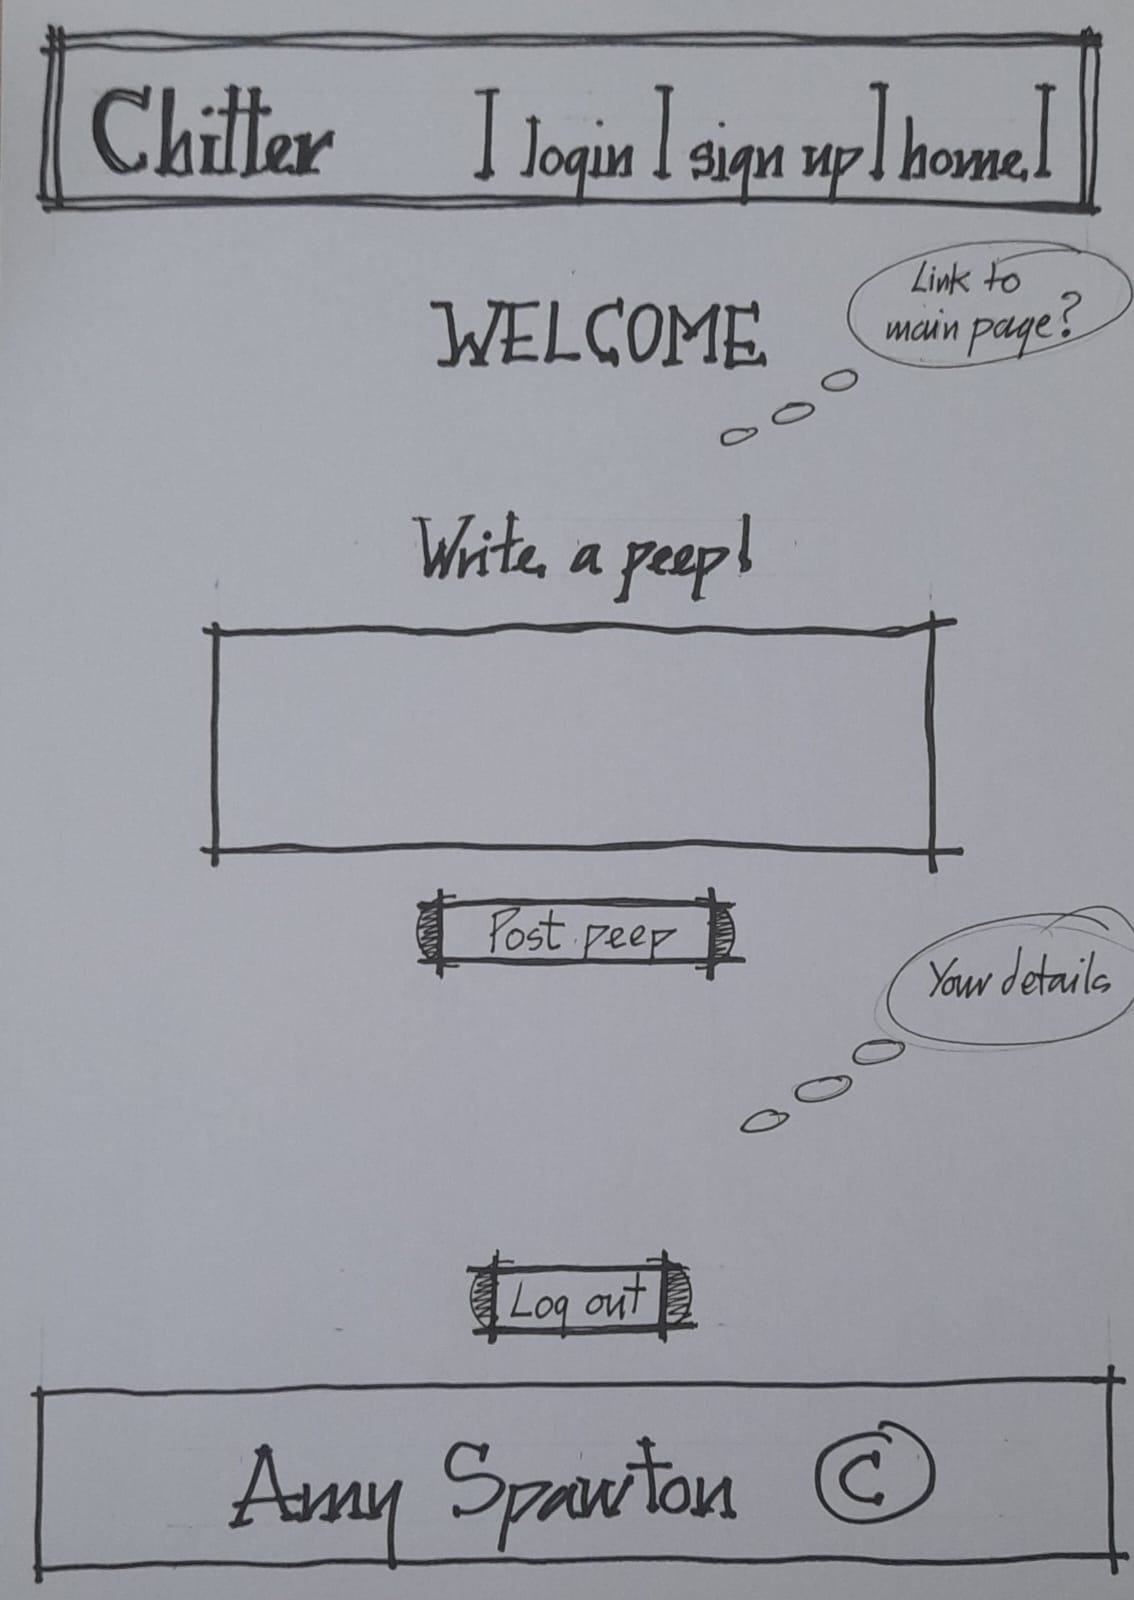 Chitter | login | sign up | home |
Link to
main page?
WELCOME
Write a peep!
Post peep
Your details
Log out
Amy Spawton ©